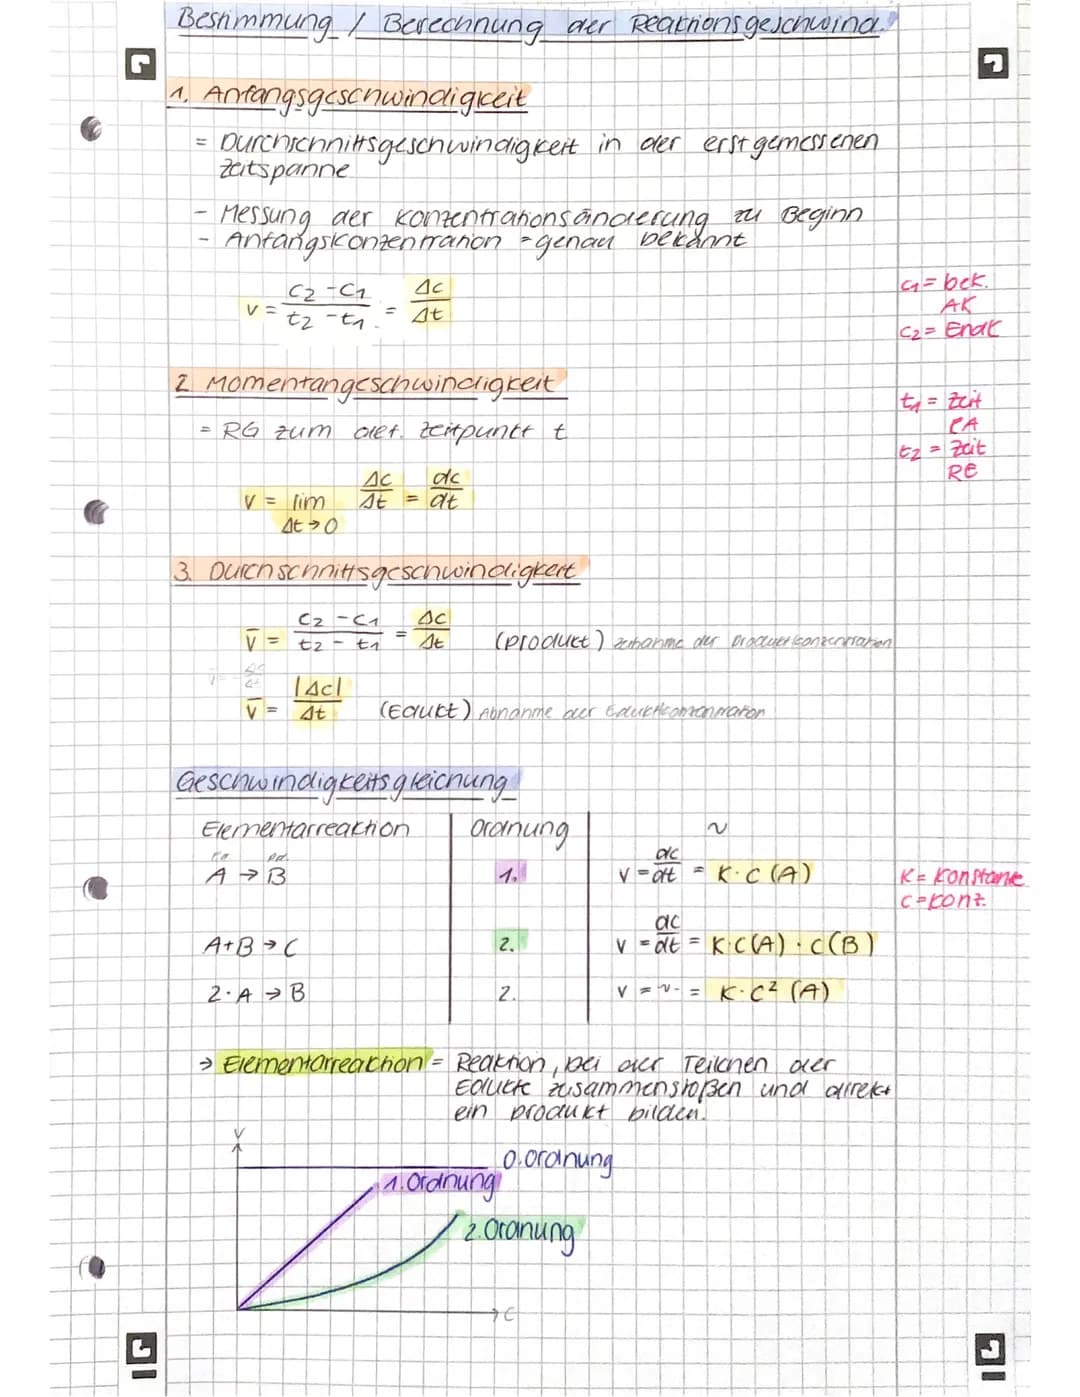 Bestimmung / Berechnung der Reaktionsgeschwind.
1. Anfangsgeschwindigkeit
= Durchschnittsgeschwindigkeit in der erstgemessenen
Zeitspanne
- Messung der Konzentrationsänderung zu Beginn
- Anfangskonzentration = genau bekannt
v = (c2 - c1)/(t2 - t1) = Δc/Δt
c1 = bek.
AK
c2 = EndK
2 Momentangeschwindigkeit
= RG zum def. Zeitpunkt t
t1 = Zeit
RA
t2 = Zeit
RE
v = lim Δc/Δt = dc/dt
Δt → 0
3. Durchschnittsgeschwindigkeit
v̅ = (c2 - c1)/(t2 - t1) = Δc/Δt (Produkt) Zunahme der Produktkonzentration
v̅ = |Δc|/Δt (Edukt) Abnahme der Eduktkonzentration
Geschwindigkeitsgleichung
Elementarreaktion Ordnung ~
A → B 1. v = dc/dt = K · c (A)
K = Konstante
c = Konz.
A + B → C 2. v = dc/dt = K · c(A) · c(B)
2 · A → B 2. v = -~- = K · c² (A)
→ Elementarreaktion = Reaktion, bei der Teilchen der
Edukte zusammenstoßen und direkt
ein Produkt bilden.
v
0. Ordnung
1. Ordnung
2. Ordnung
c